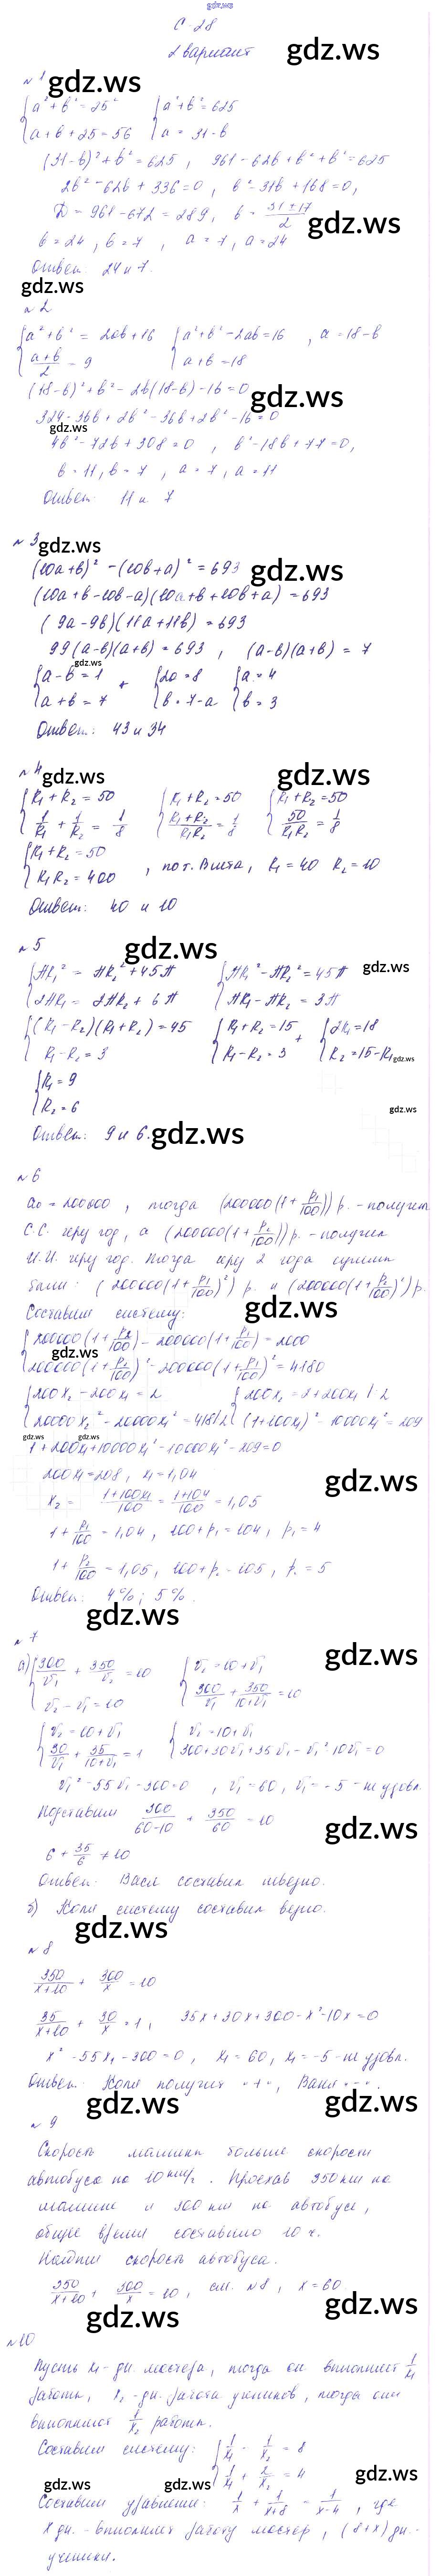 gdz.ws
С-28
2 вариант
№1
{a² + b² = 25² {a² + b² = 625
{a + b + 25 = 56 {a = 31 - b
(31 - b)² + b² = 625, 961 - 62b + b² + b² = 625
2b² - 62b + 336 = 0, b² - 31b + 168 = 0,
D = 961 - 672 = 289, b = (31 ± 17)/2
b = 24, b = 7, a = 7, a = 24
Ответ: 24 и 7.
№2
{a² + b² = 2ab + 16 {a² + b² - 2ab = 16, a = 18 - b
{(a + b)/2 = 9 {a + b = 18
(18 - b)² + b² - 2b(18 - b) - 16 = 0
324 - 36b + 2b² - 36b + 2b² - 16 = 0
4b² - 72b + 308 = 0, b² - 18b + 77 = 0,
b = 11, b = 7, a = 7, a = 11
Ответ: 11 и 7
№3
(10a + b)² - (10b + a)² = 693
(10a + b - 10b - a)(10a + b + 10b + a) = 693
(9a - 9b)(11a + 11b) = 693
99(a - b)(a + b) = 693, (a - b)(a + b) = 7
{a - b = 1 + {2a = 8 {a = 4
{a + b = 7 {b = 7 - a {b = 3
Ответ: 43 и 34
№4
{R₁ + R₂ = 50 {R₁ + R₂ = 50 {R₁ + R₂ = 50
{1/R₁ + 1/R₂ = 1/8 {(R₁ + R₂)/(R₁R₂) = 1/8 {50/(R₁R₂) = 1/8
{R₁ + R₂ = 50
{R₁R₂ = 400, по т. Виета, R₁ = 40 R₂ = 10
Ответ: 40 и 10
№5
{πR₁² = πR₂² + 45π {πR₁² - πR₂² = 45π
{2πR₁ = 2πR₂ + 6π {πR₁ - πR₂ = 3π
{(R₁ - R₂)(R₁ + R₂) = 45 {R₁ + R₂ = 15 + {2R₁ = 18
{R₁ - R₂ = 3 {R₁ - R₂ = 3 {R₂ = 15 - R₁
{R₁ = 9
{R₂ = 6
Ответ: 9 и 6.
№6
a₀ = 200000, тогда (200000(1 + p₁/100)) р. - получит
С.С. через год, а (200000(1 + p₂/100)) р. - получил
И.И. через год. Тогда через 2 года суммы
были: (200000(1 + p₁/100)²) р. и (200000(1 + p₂/100)²) р.
Составим систему:
{200000(1 + p₂/100) - 200000(1 + p₁/100) = 2000
{200000(1 + p₂/100)² - 200000(1 + p₁/100)² = 4180
{200x₂ - 200x₁ = 2 {200x₂ = 2 + 200x₁ |:2
{20000x₂² - 20000x₁² = 418 |:2 {(1 + 100x₁)² - 10000x₁² = 209
1 + 200x₁ + 10000x₁² - 10000x₁² - 209 = 0
200x₁ = 208, x₁ = 1,04
x₂ = (1 + 100x₁)/100 = (1 + 104)/100 = 1,05
1 + p₁/100 = 1,04, 100 + p₁ = 104, p₁ = 4
1 + p₂/100 = 1,05, 100 + p₂ = 105, p₂ = 5
Ответ: 4%; 5%.
№7
а) {300/v₁ + 350/v₂ = 10 {v₂ = 10 + v₁
{v₂ - v₁ = 10 {300/v₁ + 350/(10 + v₁) = 10
{v₂ = 10 + v₁ {v₂ = 10 + v₁
{30/v₁ + 35/(10 + v₁) = 1 {300 + 30v₁ + 35v₁ - v₁² - 10v₁ = 0
v₁² - 55v₁ - 300 = 0, v₁ = 60, v₁ = -5 - не удовл.
Подставим 300/(60 - 10) + 350/60 = 10
6 + 35/6 ≠ 10
Ответ: Вася составил неверно.
б) Коля систему составил верно.
№8
350/(x + 10) + 300/x = 10
35/(x + 10) + 30/x = 1, 35x + 30x + 300 - x² - 10x = 0
x² - 55x₁ - 300 = 0, x₁ = 60, x₁ = -5 - не удовл.
Ответ: Коля получит "+", Ваня "-".
№9
Скорость машины больше скорости
автобуса на 10 км/ч. Проехав 350 км на
машине и 300 км на автобусе,
общее время составило 10 ч.
Найдти скорость автобуса.
350/(x + 10) + 300/x = 10, см. №8, x = 60
№10
Пусть x₁ - дн. мастера, тогда он выполнит 1/x₁
работы, x₂ - дн. работа учеников, тогда они
выполняют 1/x₂ работы.
Составим систему: {1/x₁ - 1/x₂ = 8
{1/x₁ + 2/x₂ = 4
Составим уравнение: 1/x + 1/(x + 8) = 1/(x - 4), где
x дн. - выполнит работу мастер, (8 + x) дн. -
ученики.